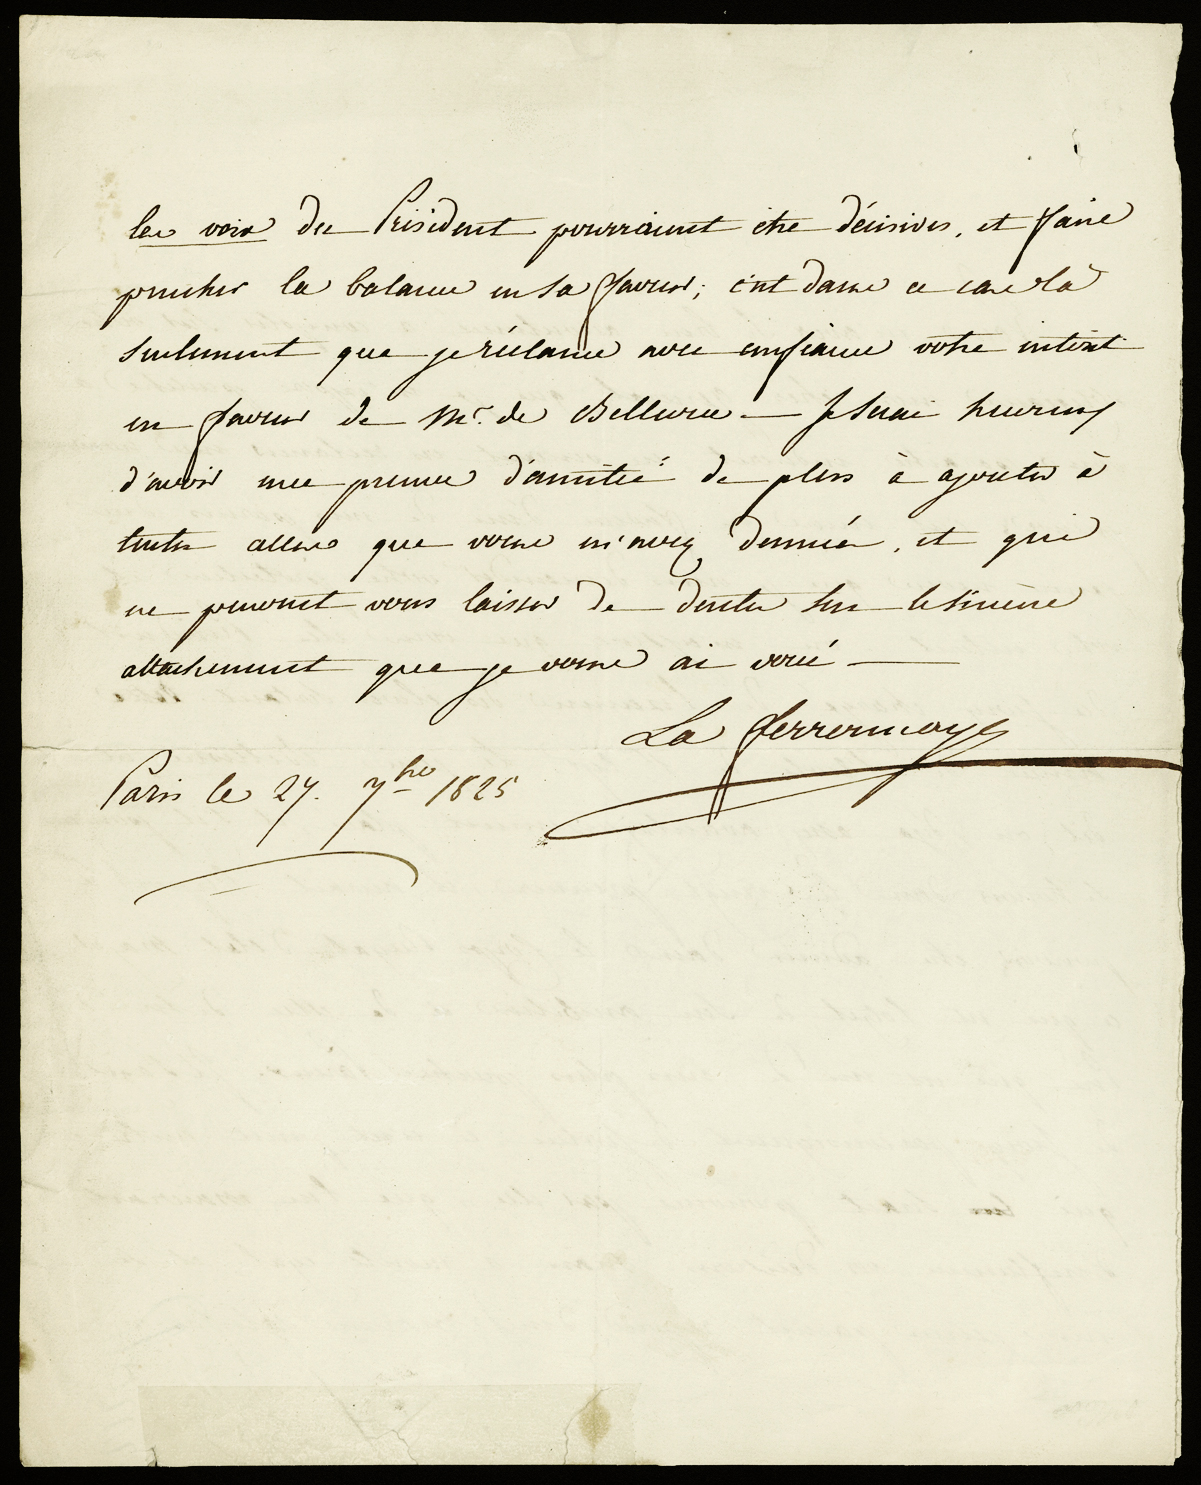 les voix du Président pourraient être décisives, et faire
pencher la balance en sa faveur; c'est dans ce cas là
seulement que je réclame avec confiance votre intérêt
en faveur de Mr. de Bellune — Je serai heureux
d'avoir une preuve d'amitié de plus à ajouter à
toutes celles que vous m'avez données, et qui
ne peuvent vous laisser de doutes sur le sincère
attachement que je vous ai voué —
La Ferronnays
Paris le 27. 7bre 1825